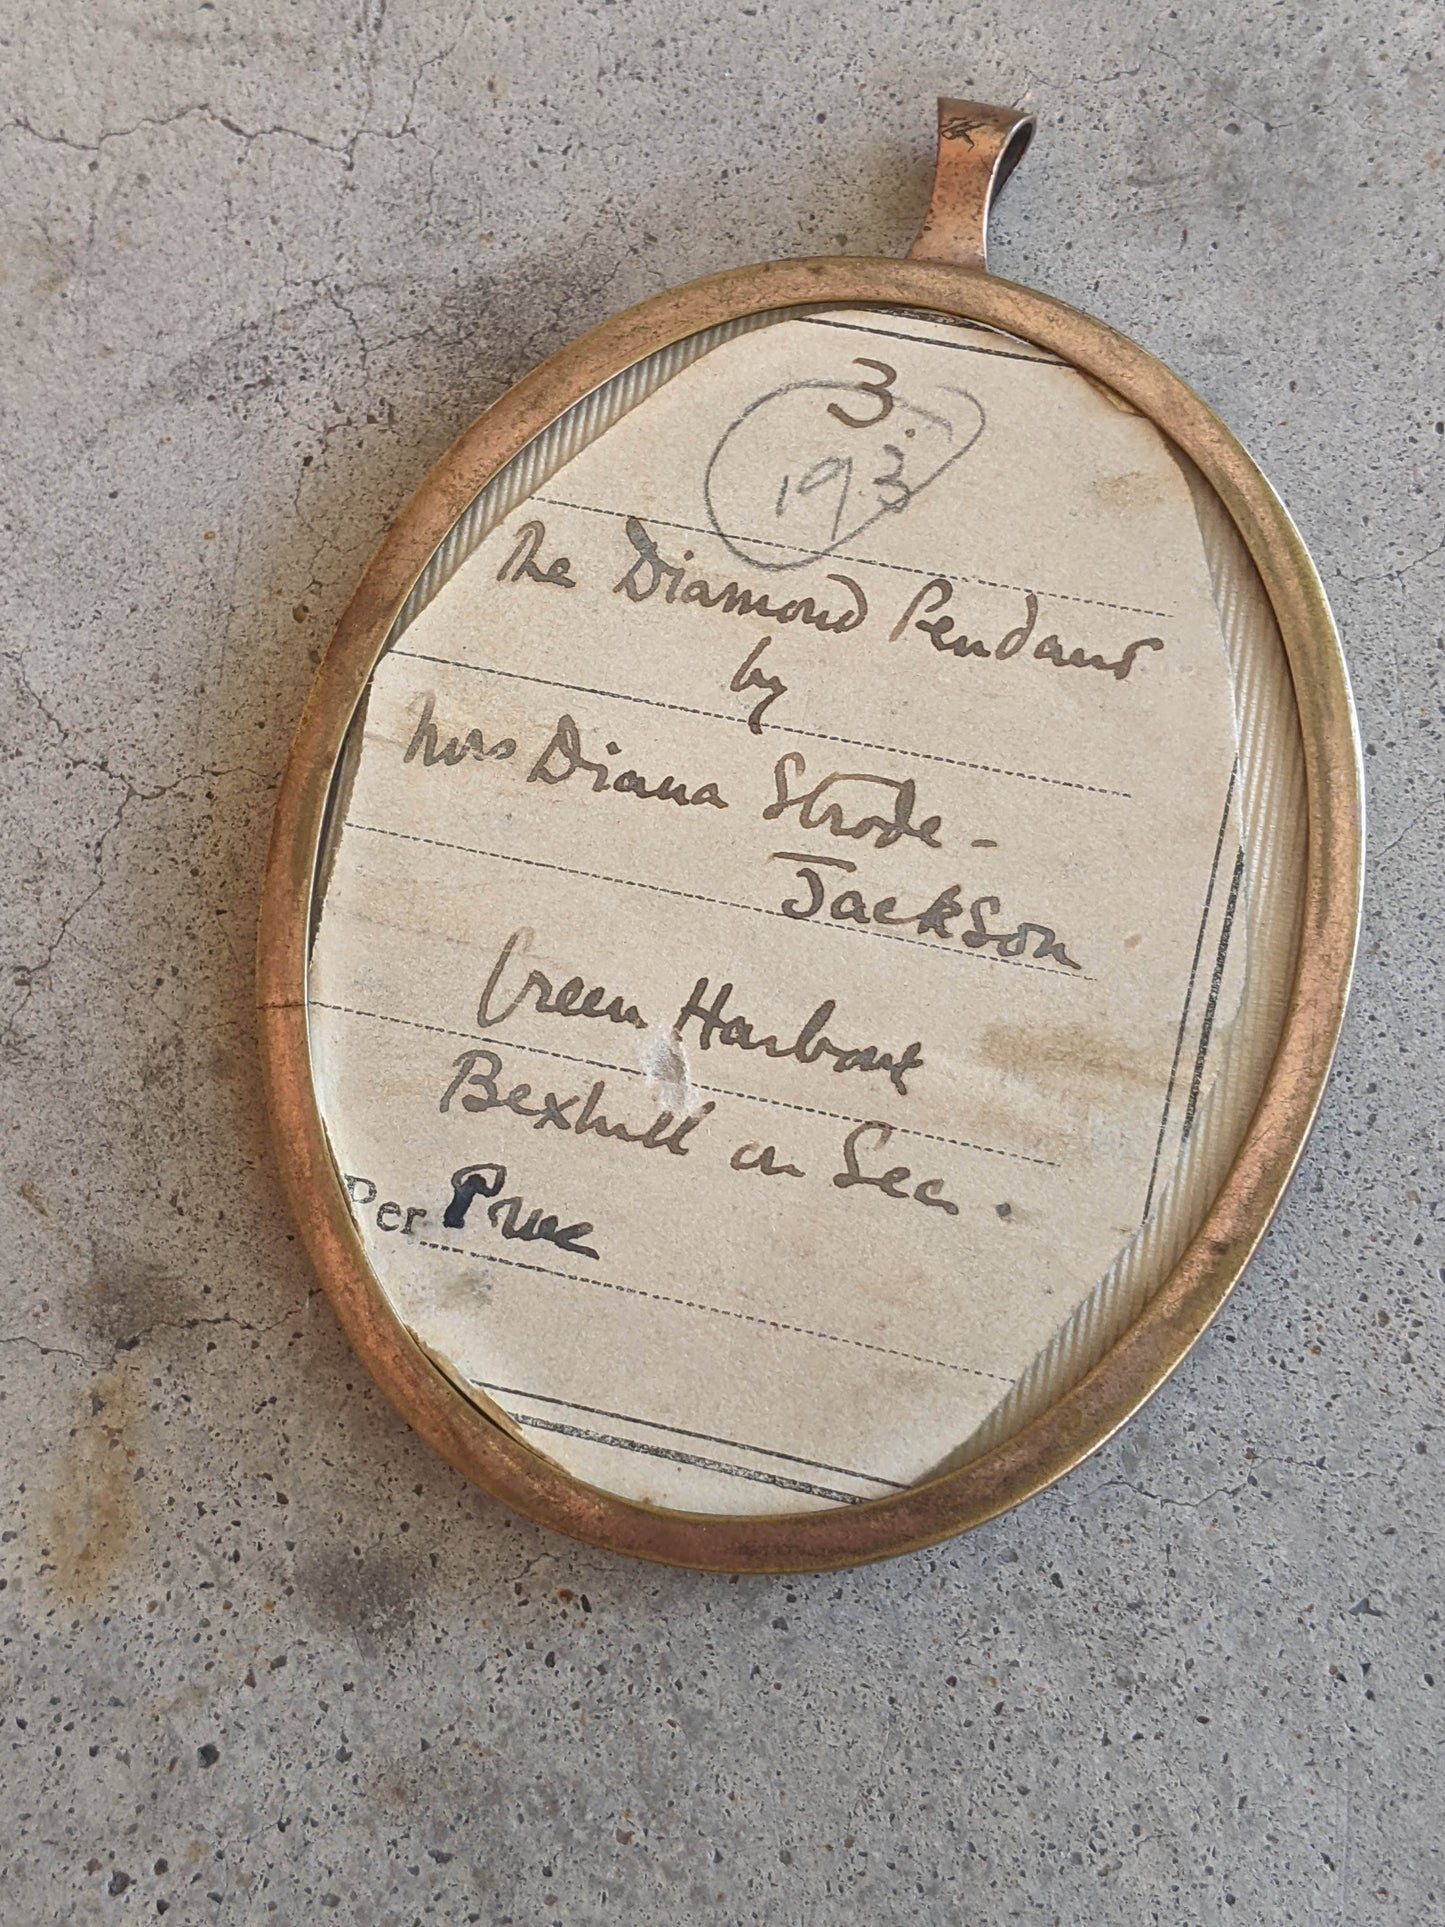 3.
193
The Diamond Pendant
by
Mrs Diana Strode-
Jackson
Green Harbour
Bexhill on Sea.
Per